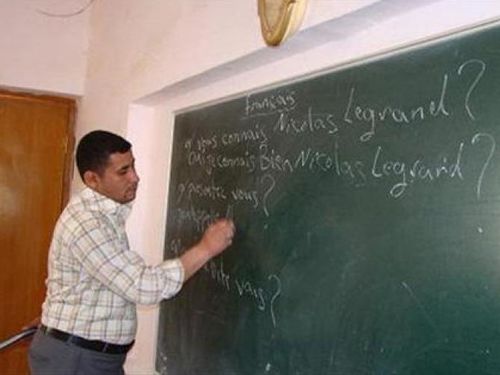 Français
vous connais Nicolas Legrand?
Oui je connais Bien Nicolas Legrand?
vous?
vous?